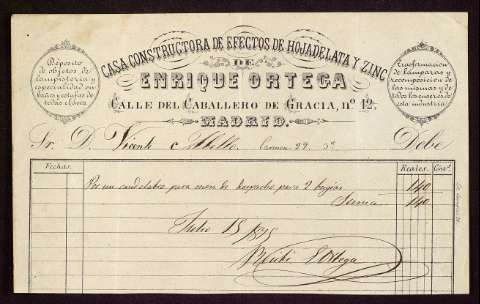 CASA CONSTRUCTORA DE EFECTOS DE HOJADELATA Y ZINC
DE
ENRIQUE ORTEGA
CALLE DEL CABALLERO DE GRACIA, nº 12.
MADRID.
Depósito
de objetos de
lampistería y
especialidad en
baños y estufas de
todas clases
Trasformacion
de lámparas y
recomposicion de
las mismas y de
todos los enseres de
esta industria
Sr. D. Vicente Carmen 29. 3º Debe
Fechas. Reales. Cén.s
Por un candelabro para mesa de despacho para 2 bujías 140
Suma 140
Julio 15
Recibí E Ortega